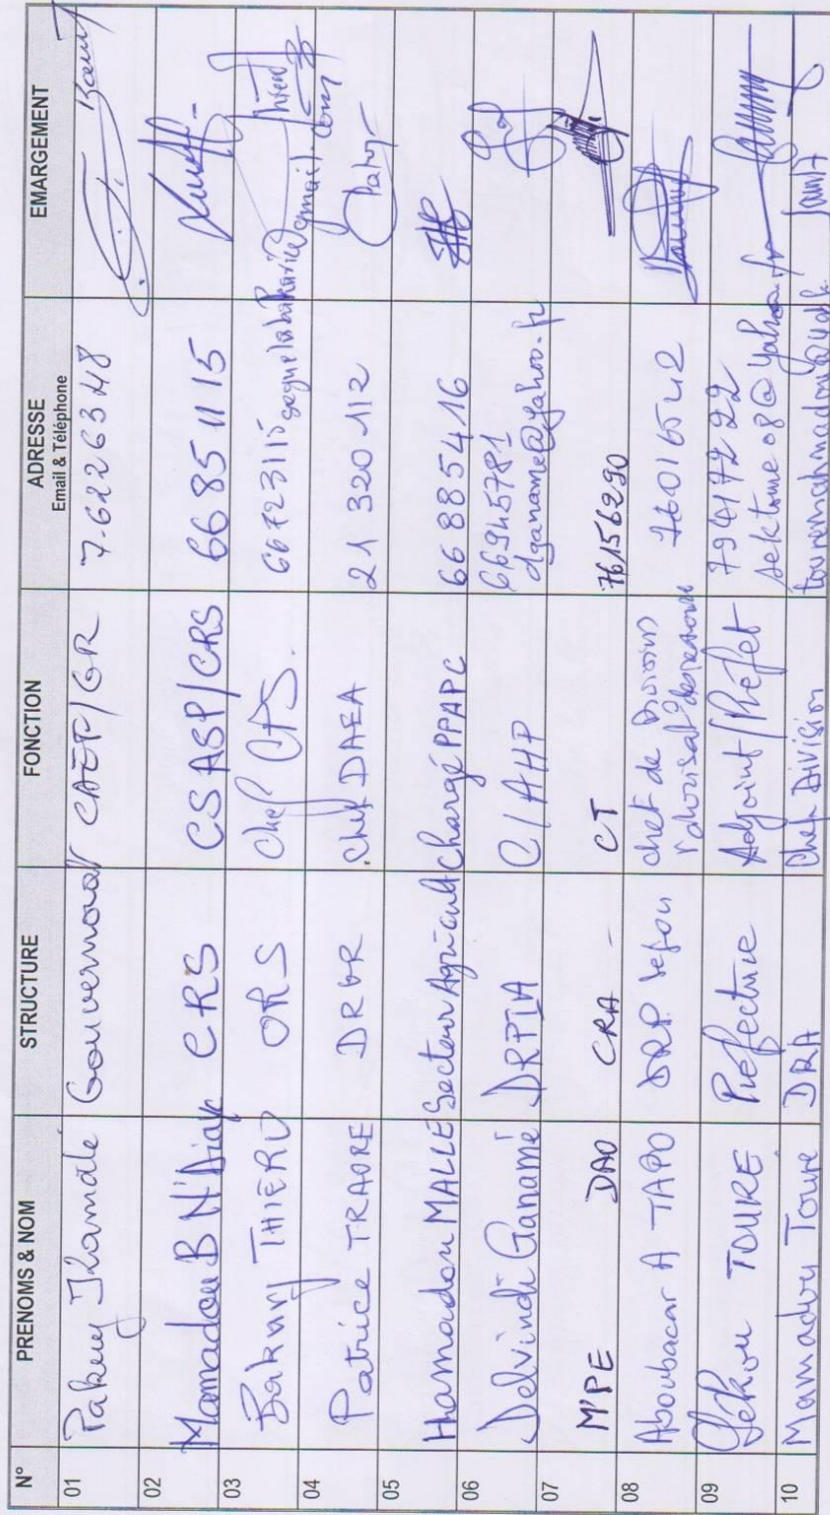 N° PRENOMS & NOM STRUCTURE FONCTION ADRESSE EMARGEMENT
Email & Téléphone
01 Gouvernorat CAEP/GR 76226348
02 Mamadou B N'Diaye CRS CSASP/CRS 66851115
03 Bakary THIERO ORS Chef CPS. 66723115
gmail.com
04 Patrice TRAORE DRGR Chef DAEA 21 320 112
05 Hamadou MALLE Secteur Agricult Chargé PPAPC 66885416
06 Delvindi Ganamé DRPIA C/AHP 66945781
dganame@yahoo.fr
07 M'PE DAO CRA CT 76156290
08 Aboubacar A TAPO DRP Segou chef de Division 76016542
09 Sékou TOURE Préfecture Adjoint/Préfet 79417222
sektoure08@yahoo.fr
10 Mamadou Toure DRA Chef Division